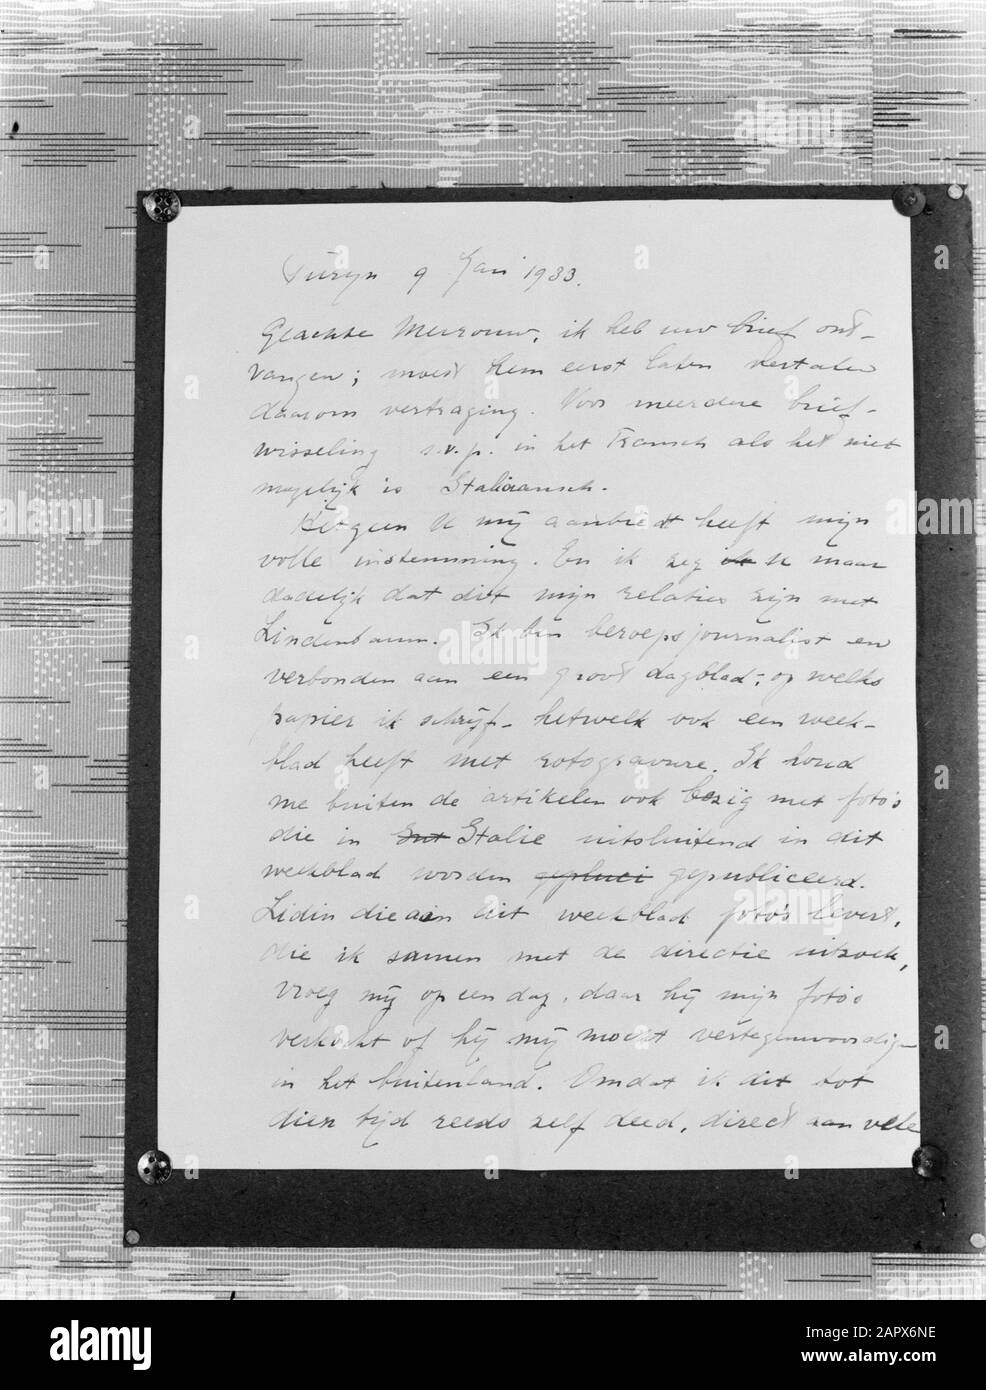 Turyn 9 Jan 1933.
Geachte Mevrouw, ik heb uw brief ont-
vangen; moest hem eerst laten vertalen
daarom vertraging. Voor meerdere brief-
wisseling s.v.p. in het Fransch als het niet
mogelijk is Italiaansch.
Hetgeen U mij aanbiedt heeft mijn
volle instemming. En ik zeg U maar
dadelijk dat dit mijn relaties zijn met
Lindenbaum. Ik ben beroepsjournalist en
verbonden aan een groot dagblad; op welks
papier ik schrijf - hetwelk ook een week-
blad heeft met rotogravure. Ik houd
me buiten de artikelen ook bezig met foto's
die in Italie uitsluitend in dit
weekblad worden gepubliceerd.
die aan dit weekblad foto's levert,
die ik samen met de directie uitzoek,
vroeg mij op een dag, daar hij mijn foto's
verkocht of hij mij mocht vertegenwoordigen
in het buitenland. Omdat ik dit tot
dien tijd reeds zelf deed, direct aan vele
alamy
Image ID: 2APX6NE
www.alamy.com